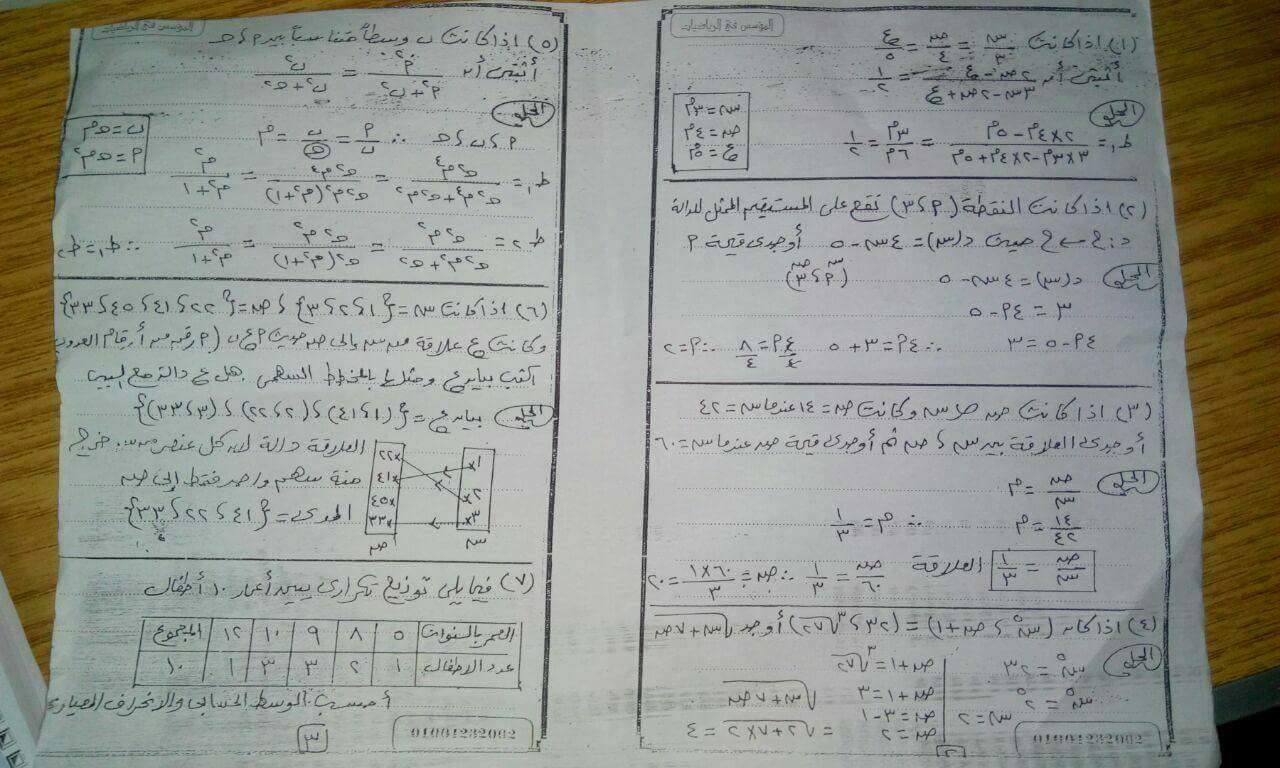 المؤسس في الرياضيات
(١) إذا كانت س/٣ = ص/٤ = ع/٥
أثبتي أن (٢ص - ع)/(٣س - ٢ص + ع) = ١/٢
الحل
ط١ = (٢×٤م - ٥م)/(٣×٣م - ٢×٤م + ٥م) = ٣م/٦م = ١/٢
س = ٣م
ص = ٤م
ع = ٥م
(٢) إذا كانت النقطة (٣،٩) تقع على المستقيم الممثل للدالة
د: ح ← ح حيث د(س) = ٤س - ٥ أوجدي قيمة ٩
الحل د(س) = ٤س - ٥ (٣،٩)
س ص
٣ = ٤٩ - ٥
٤٩ - ٥ = ٣ ∴ ٤٩ = ٣ + ٥ ٤٩/٤ = ٨/٤ ∴ ٩ = ٢
(٣) إذا كانت ص ∝ س وكانت ص = ١٤ عندما س = ٤٢
أوجدي العلاقة بين س ، ص ثم أوجدي قيمة ص عندما س = ٦٠
الحل
ص/س = م
١٤/٤٢ = م ∴ م = ١/٣
ص/س = ١/٣ العلاقة ص/٦٠ = ١/٣ ∴ ص = (١×٦٠)/٣ = ٢٠
(٤) إذا كان (س^٥ ، ص+١) = (٣٢ ، ³√٢٧) أوجد √(س+٧ص)
الحل
س^٥ = ٣٢
س^٥ = ٢^٥
س = ٢
ص+١ = ³√٢٧
ص+١ = ٣
ص = ٣-١
ص = ٢
√(س+٧ص)
= √(٢+٧×٢) = ٤
01001232002
٢
المؤسس في الرياضيات
(٥) إذا كانت ب وسطاً متناسباً بين ٩ ، حـ
أثبتي أن ٩²/(٩²+ب²) = ب²/(ب²+حـ²)
الحل
٩ ، ب ، حـ ∴ ٩/ب = ب/حـ = م
ب = حـ م
٩ = حـ م²
ط١ = حـ²م⁴/(حـ²م⁴+حـ²م²) = حـ²م⁴/(حـ²م²(م²+١)) = م²/(م²+١)
ط٢ = حـ²م²/(حـ²م²+حـ²) = حـ²م²/(حـ²(م²+١)) = م²/(م²+١) ∴ ط١ = ط٢
(٦) إذا كانت س = {١،٢،٣} ، ص = {٢٢،٤١،٤٥،٣٣}
وكانت ع علاقة من س إلى ص حيث ٩ ع ب (٩ رقم من أرقام العدد ب
اكتب بيان ع ومثلها بالمخطط السهمي. هل ع دالة مع السبب
الحل بيان ع = {(١،٤١)،(٢،٢٢)،(٣،٣٣)}
العلاقة دالة لأن كل عنصر من س خرج
منه سهم واحد فقط إلى ص
المدى = {٤١،٢٢،٣٣}
×١
×٢
×٣
س
٢٢×
٤١×
٤٥×
٣٣×
ص
(٧) فيما يلي توزيع تكراري يبين أعمار ١٠ أطفال
العمر بالسنوات ٥ ٨ ٩ ١٠ ١٢ المجموع
عدد الأطفال ١ ٢ ٣ ٣ ١ ١٠
أحسب الوسط الحسابي والانحراف المعياري
01001232002
٣